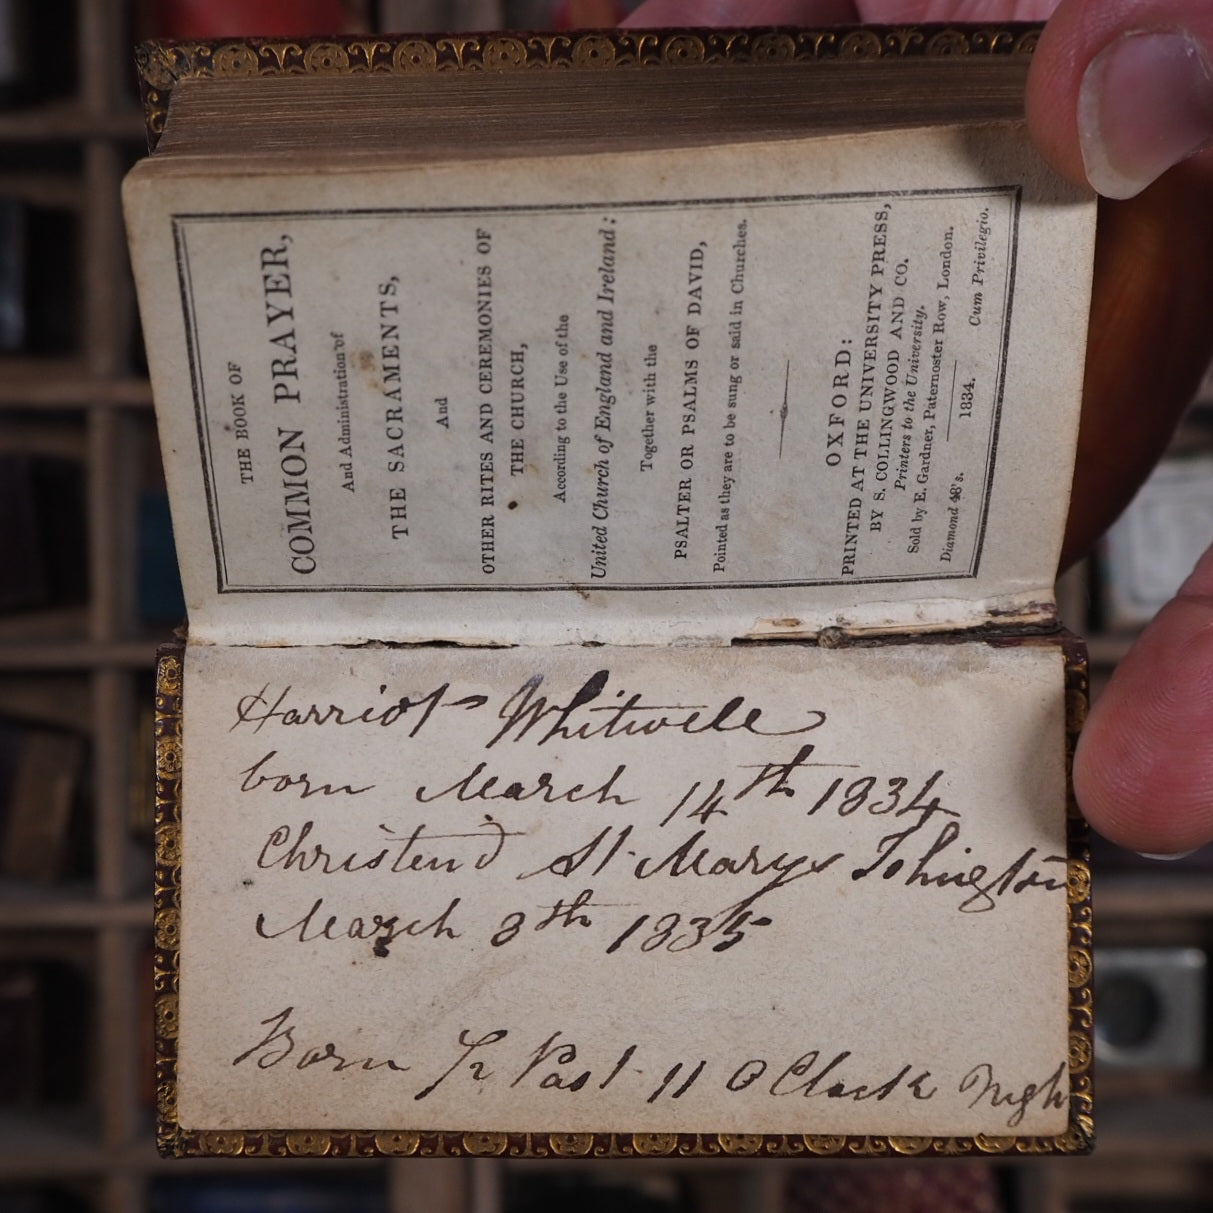 THE BOOK OF
COMMON PRAYER,
And Administration of
THE SACRAMENTS,
And
OTHER RITES AND CEREMONIES OF
THE CHURCH,
According to the Use of the
United Church of England and Ireland:
Together with the
PSALTER OR PSALMS OF DAVID,
Pointed as they are to be sung or said in Churches.
OXFORD:
PRINTED AT THE UNIVERSITY PRESS,
BY S. COLLINGWOOD AND CO.
Printers to the University.
Sold by E. Gardner, Paternoster Row, London.
1834.
Diamond 48's. Cum Privilegio.
Harriot Whitwell
born March 14th 1834
Christend St Marys Islington
March 8th 1835
Born ½ Past 11 O Clock Nigh